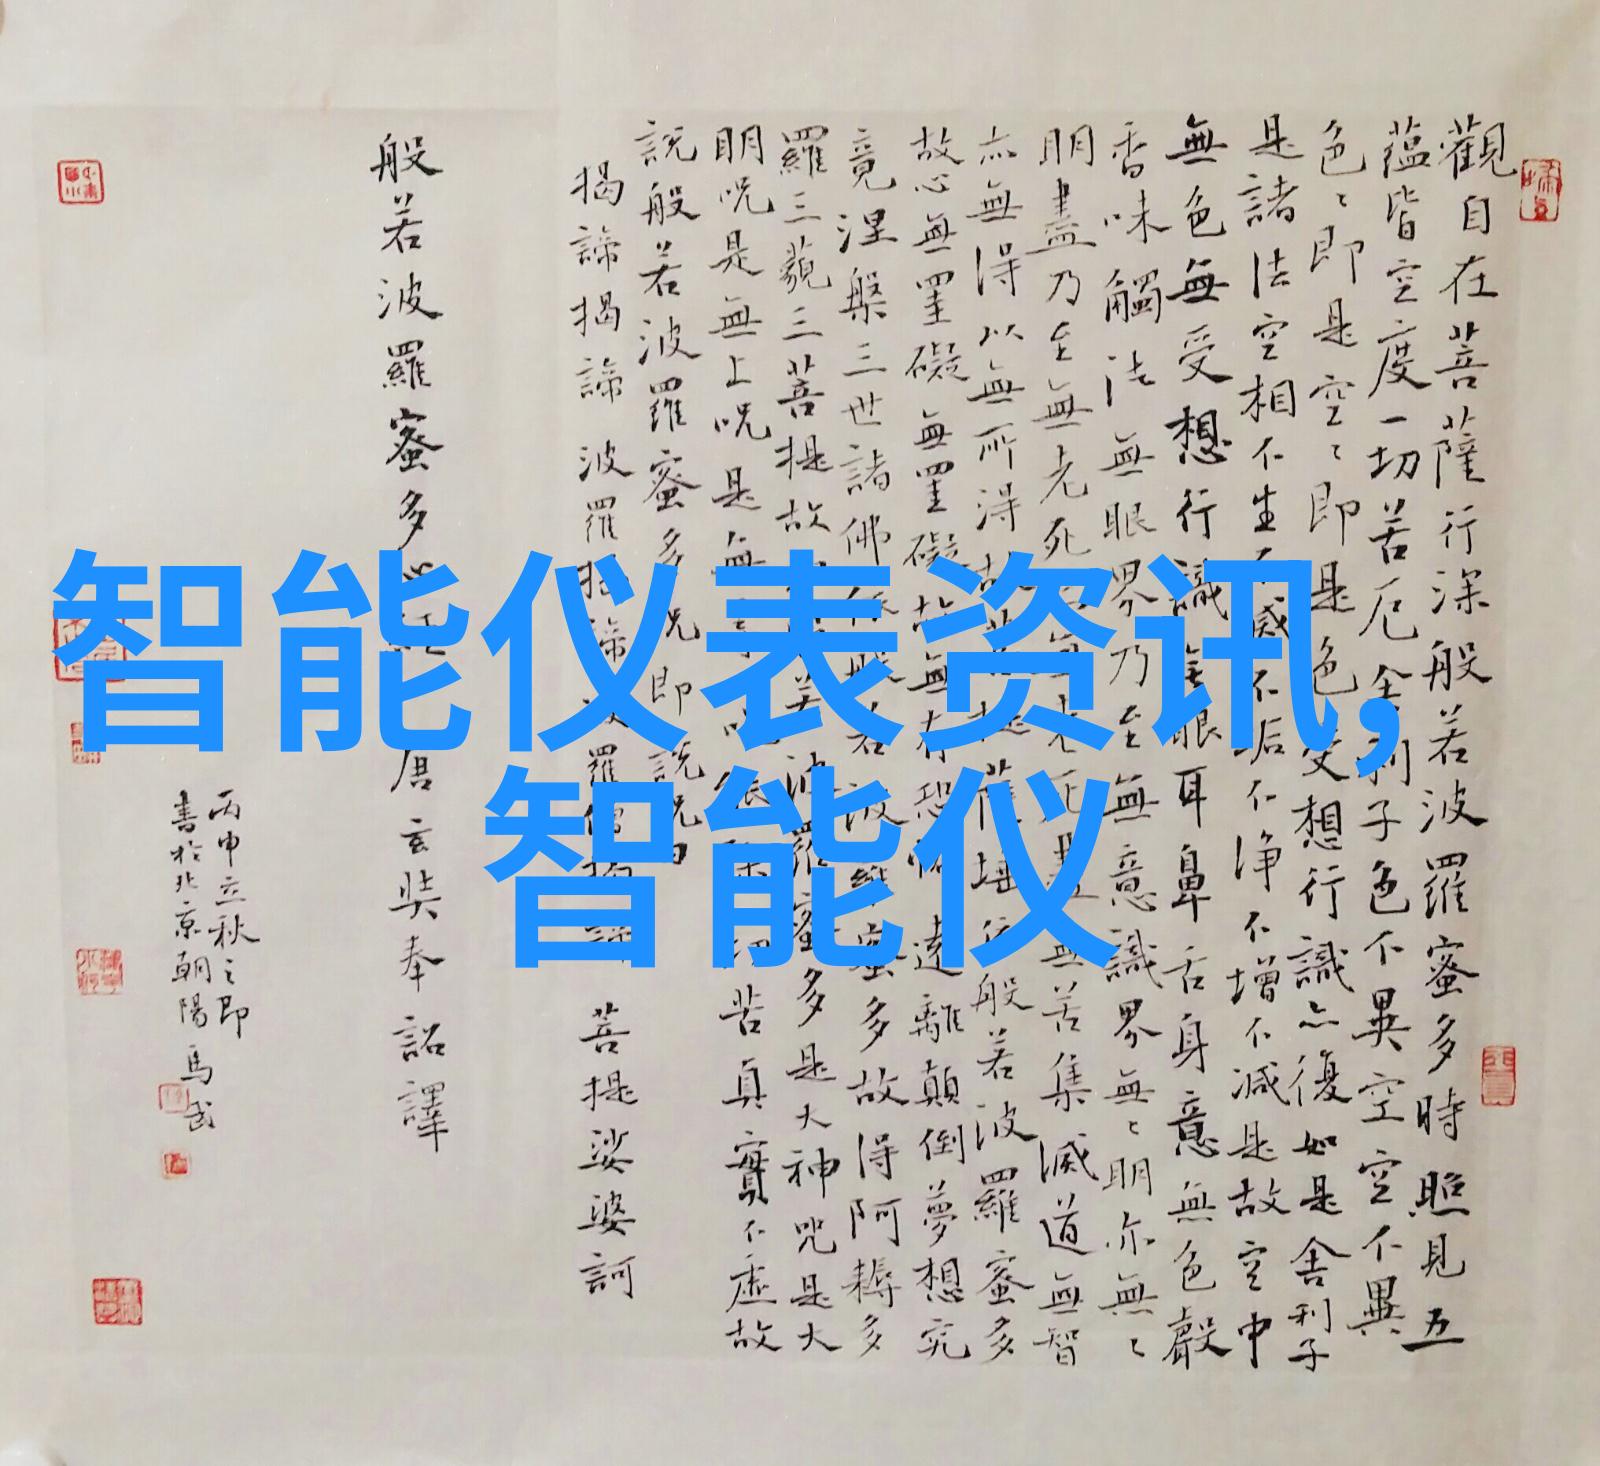 智能仪表资讯,
智能仪
觀自在菩薩行深般若波羅蜜多時照見五
蘊皆空度一切苦厄舍利子色不異空空不異
色〻即是空〻即是色受想行識亦復如是舍利子
是諸法空相不生不滅不垢不淨不增不減是故空中
無色無受想行識無眼耳鼻舌身意無色聲
香味觸法無眼界乃至無意識界無〻明亦無〻
明盡乃至無老死亦無老死盡無苦集滅道無智
亦無得以無所得故菩提薩埵依般若波羅蜜多
故心無罣礙無罣礙故無有恐怖遠離顛倒夢想究
竟涅槃三世諸佛依般若波羅蜜多故得阿耨多
羅三藐三菩提故般若波羅蜜多是大神咒是大
明呪是無上呪是無呪能除切苦真實不虛故
說般若波羅蜜多呪即說呪曰
揭諦揭諦波羅揭諦波羅僧揭諦菩提娑婆訶
般若波羅蜜多心經唐玄奘奉詔譯
丙申立秋之即
書於北京朝陽馬武